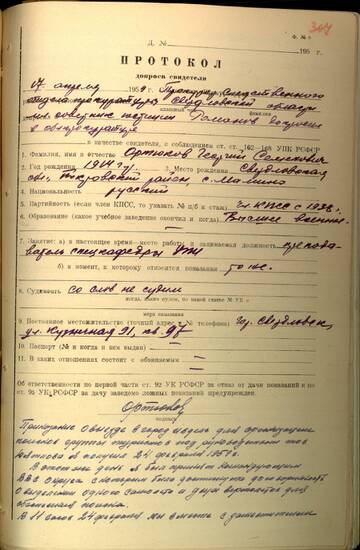 307
Ф. № 9
Д. № 195 г.
ПРОТОКОЛ
допроса свидетеля
17 апреля 1959 Прокурор следственного
отдела прокуратуры Свердловской области
мл. советник юстиции Романов допросил
в облпрокуратуре
в качестве свидетеля, с соблюдением ст. ст. 162—168 УПК РСФСР
1. Фамилия, имя и отчество Ортюков Георгий Семенович
2. Год рождения 1914 г. 3. Место рождения Свердловская
обл. район, с. Мамино
4. Национальность русский
5. Партийность (если член КПСС, то указать № п/б и стаж) чл КПСС с 1938
6. Образование (какое учебное заведение окончил и когда) Высшее военное
7. Занятие: а) в настоящее время — место работы и занимаемая должность препода-
ватель спецкафедры УПИ
б) к моменту, к которому относятся показания то же
8. Судимость со слов не судим
когда, каким судом, по какой статье УК и
мера наказания
9. Постоянное местожительство (точный адрес и № телефона) гор. Свердловск,
ул. 91, кв. 97
10. Паспорт (№ и когда и кем выдан) —
11. В каких отношениях состоит с обвиняемым —
Об ответственности по первой части ст. 92 УК РСФСР за отказ от дачи показаний и по
ст. 95 УК РСФСР за дачу заведомо ложных показаний предупрежден.
Ортюков
подпись
Приказание о выезде в город Ивдель для организации
поисков группы туристов под руководством тов
Дятлова я получил 21 февраля 1959 г.
В этот же день я был принят командующим
ВВС округа с которым была достигнута договоренность
о выделении одного самолета и двух вертолетов для
поиска.
В 11 часов 22 февраля мы вместе с заместителем